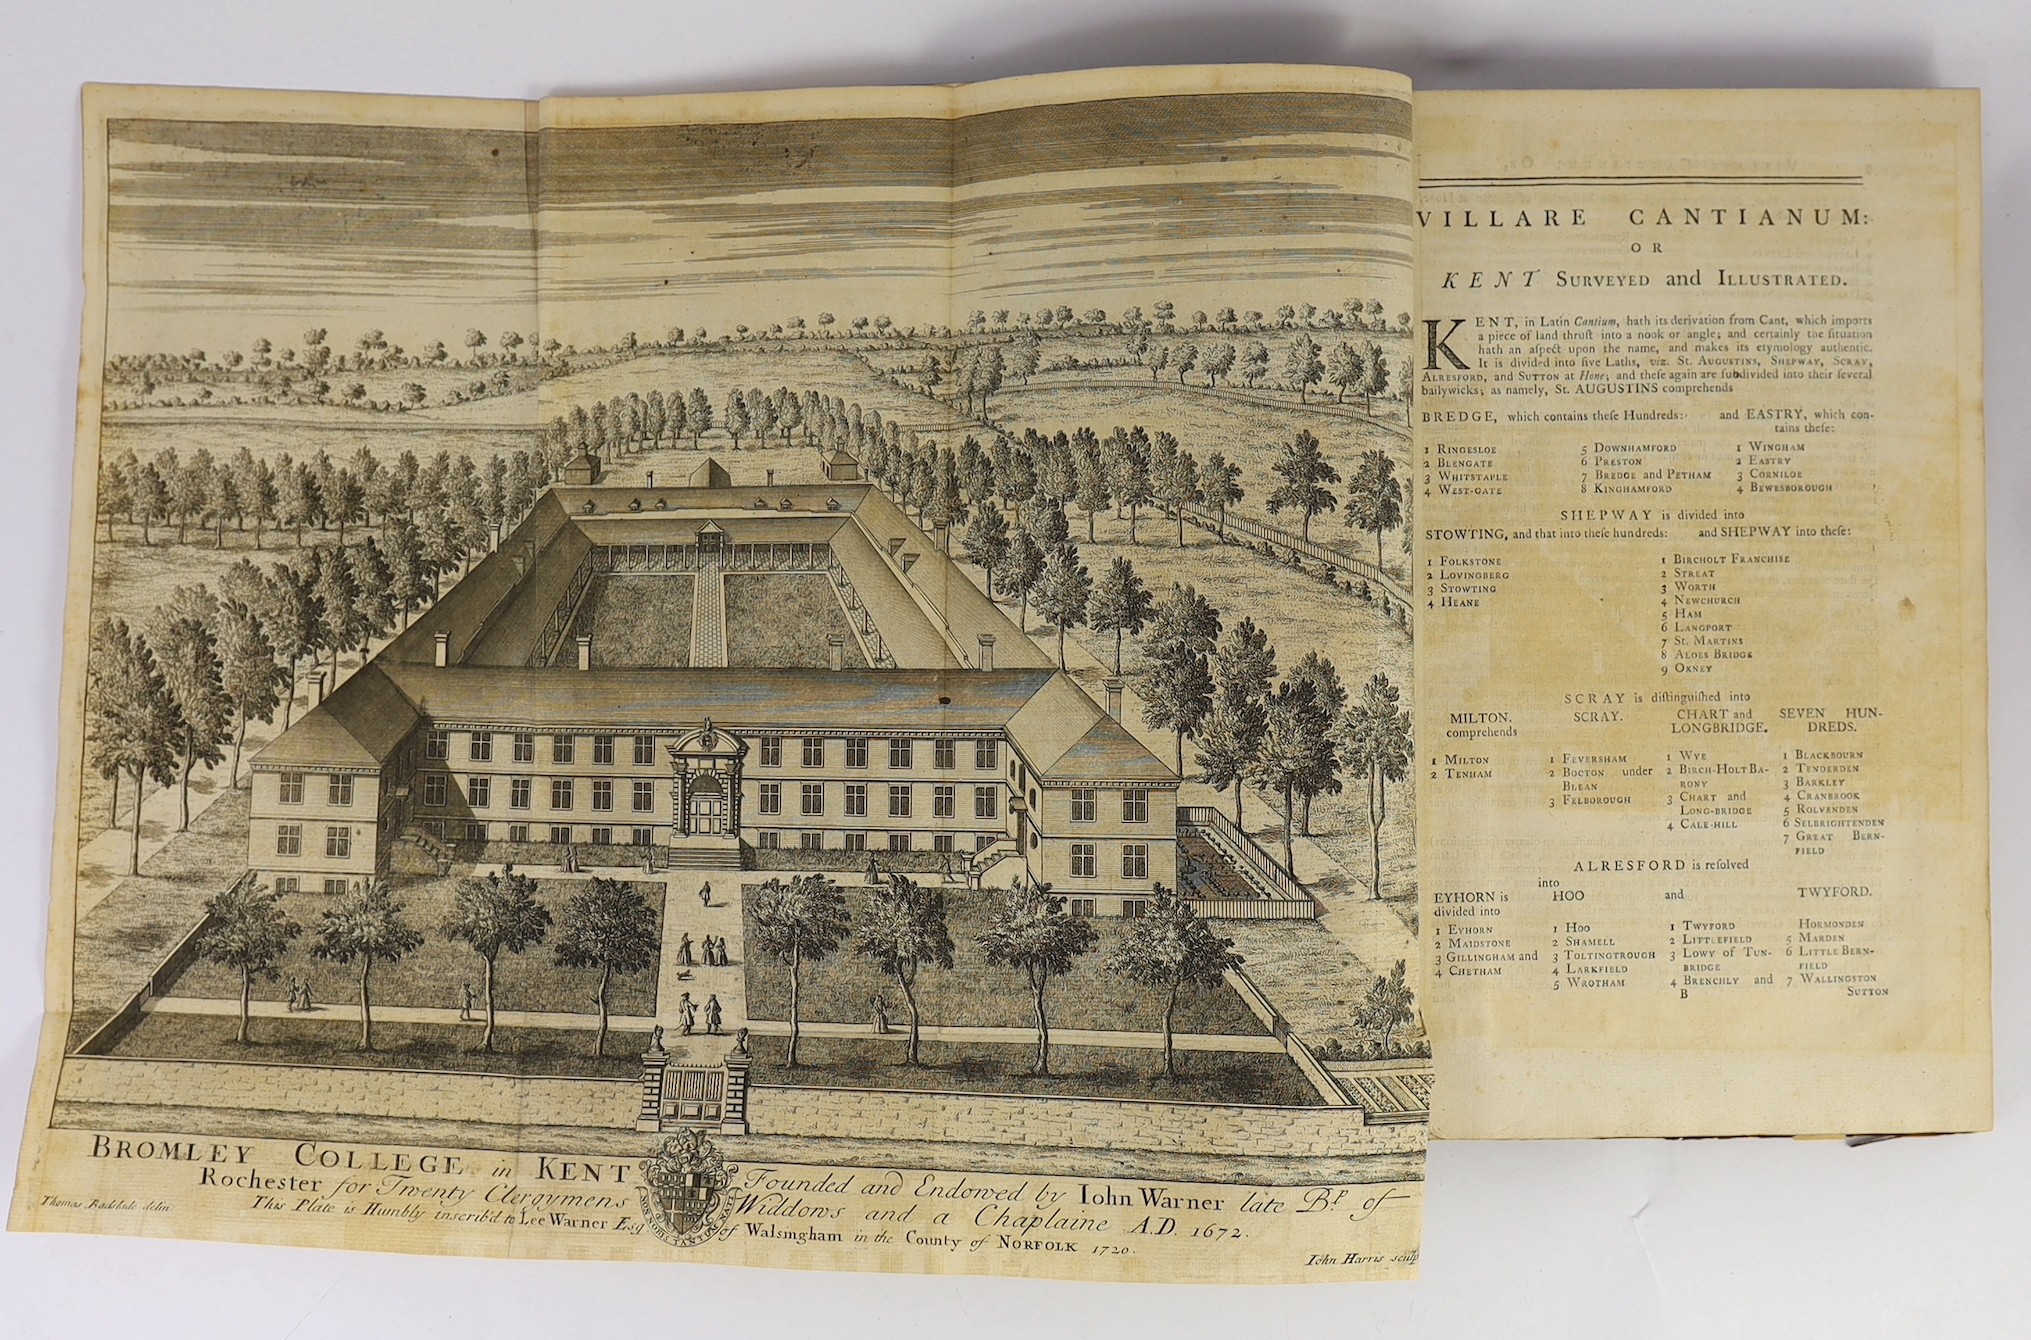 BROMLEY COLLEGE in KENT Founded and Endowed by Iohn Warner late Bp. of
Rochester for Twenty Clergymens Widdows and a Chaplaine A.D. 1672.
This Plate is Humbly inscrib'd to Lee Warner Esq of Walsingham in the County of NORFOLK 1720.
Thomas Badslade delin
NON NOBIS TANTUM NATI
Iohn Harris sculp
VILLARE CANTIANUM:
OR
KENT SURVEYED and ILLUSTRATED.
KENT, in Latin Cantium, hath its derivation from Cant, which imports
a piece of land thruſt into a nook or angle; and certainly the ſituation
hath an aſpect upon the name, and makes its etymology authentic.
It is divided into five Laths, viz. St. AUGUSTINS, SHEPWAY, SCRAY,
ALRESFORD, and SUTTON at Hone; and theſe again are ſubdivided into their ſeveral
bailywicks; as namely, St. AUGUSTINS comprehends
BREDGE, which contains theſe Hundreds: and EASTRY, which con-
tains theſe:
1 RINGESLOE 5 DOWNHAMFORD 1 WINGHAM
2 BLENGATE 6 PRESTON 2 EASTRY
3 WHITSTAPLE 7 BREDGE and PETHAM 3 CORNILOE
4 WEST-GATE 8 KINGHAMFORD 4 BEWESBOROUGH
SHEPWAY is divided into
STOWTING, and that into theſe hundreds: and SHEPWAY into theſe:
1 FOLKSTONE 1 BIRCHOLT FRANCHISE
2 LOVINGBERG 2 STREAT
3 STOWTING 3 WORTH
4 HEANE 4 NEWCHURCH
5 HAM
6 LANGPORT
7 St. MARTINS
8 ALOES BRIDGE
9 OXNEY
SCRAY is diſtinguiſhed into
MILTON. SCRAY. CHART and SEVEN HUN-
comprehends LONGBRIDGE. DREDS.
1 MILTON 1 FEVERSHAM 1 WYE 1 BLACKBOURN
2 TENHAM 2 BOCTON under 2 BIRCH-HOLT BA- 2 TENDERDEN
BLEAN RONY 3 BARKLEY
3 FELBOROUGH 3 CHART and 4 CRANBROOK
LONG-BRIDGE 5 ROLVENDEN
4 CALE-HILL 6 SELBRIGHTENDEN
7 GREAT BERN-
FIELD
ALRESFORD is reſolved
into
EYHORN is HOO and TWYFORD.
divided into
1 EYHORN 1 HOO 1 TWYFORD HORMONDEN
2 MAIDSTONE 2 SHAMELL 2 LITTLEFIELD 5 MARDEN
3 GILLINGHAM and 3 TOLTINGTROUGH 3 LOWY of TUN- 6 LITTLE BERN-
4 CHETHAM 4 LARKFIELD BRIDGE FIELD
5 WROTHAM 4 BRENCHLY and 7 WALLINGSTON
B SUTTON